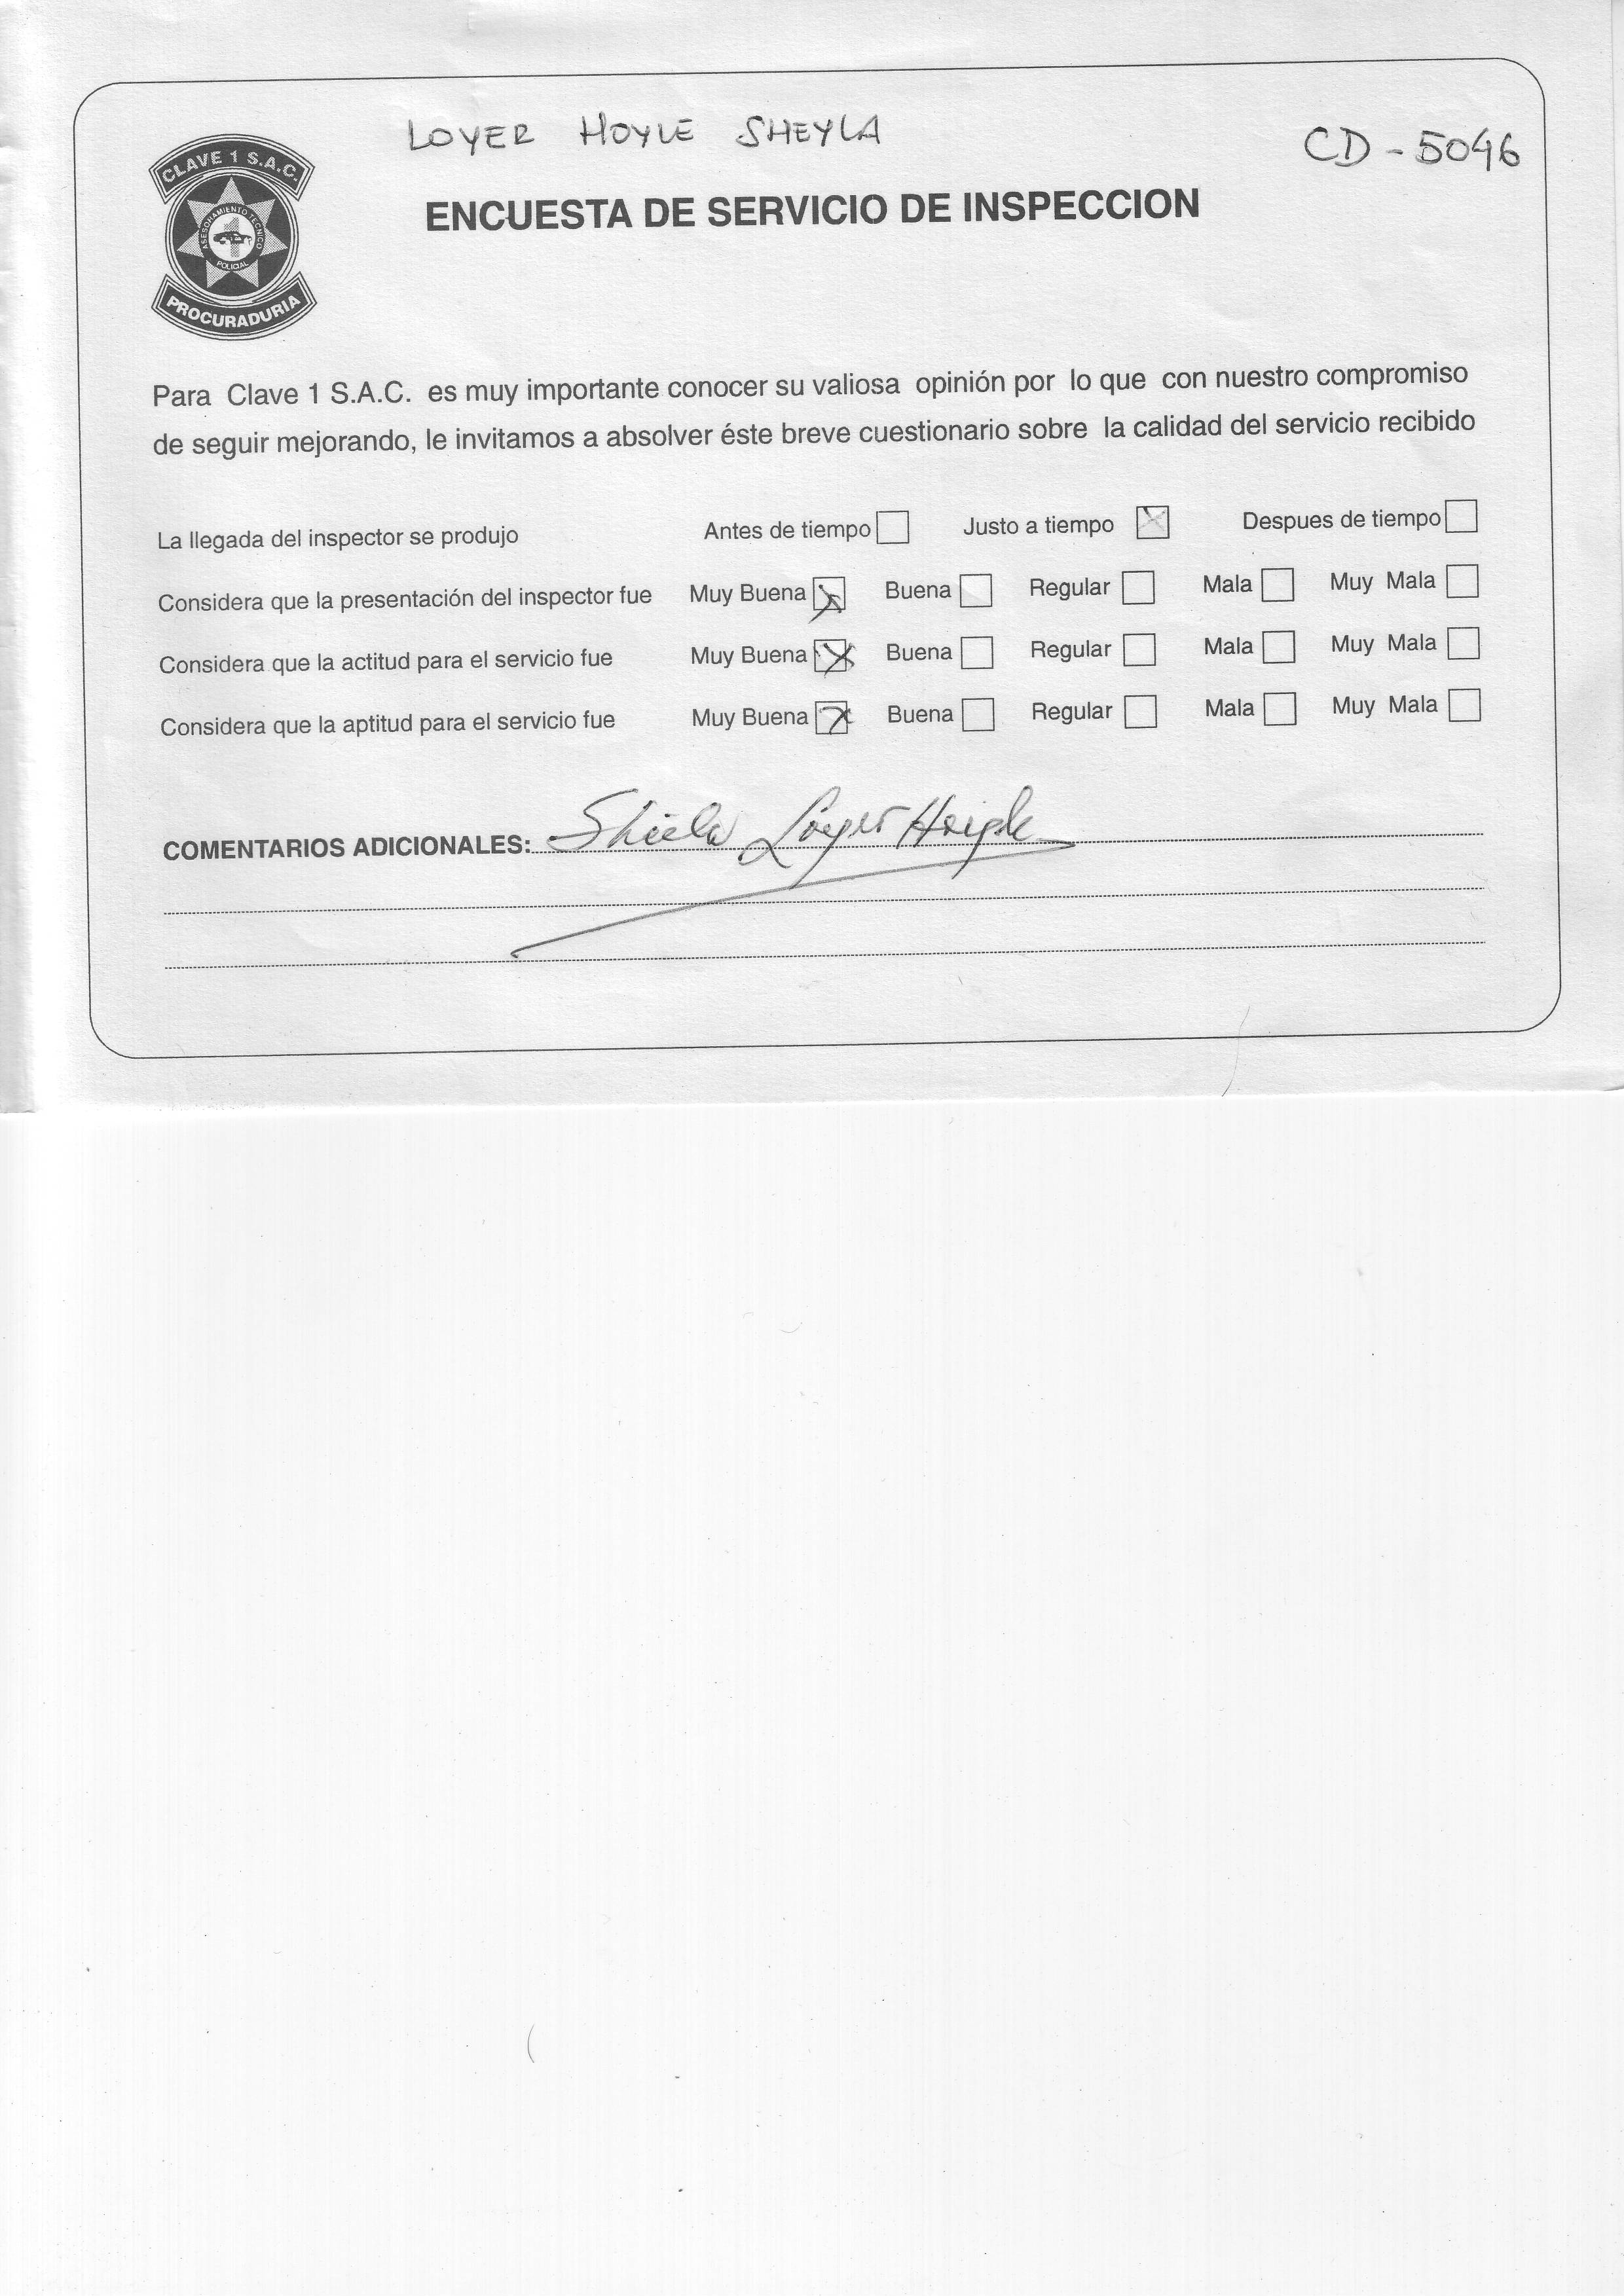 LOYER HOYLE SHEYLA
CD - 5046
CLAVE 1 S.A.C.
ASESORAMIENTO TECNICO
POLICIAL
PROCURADURIA
ENCUESTA DE SERVICIO DE INSPECCION
Para Clave 1 S.A.C. es muy importante conocer su valiosa opinión por lo que con nuestro compromiso
de seguir mejorando, le invitamos a absolver éste breve cuestionario sobre la calidad del servicio recibido
La llegada del inspector se produjo Antes de tiempo Justo a tiempo Despues de tiempo
Considera que la presentación del inspector fue Muy Buena Buena Regular Mala Muy Mala
Considera que la actitud para el servicio fue Muy Buena Buena Regular Mala Muy Mala
Considera que la aptitud para el servicio fue Muy Buena Buena Regular Mala Muy Mala
COMENTARIOS ADICIONALES: Shiela Loyer